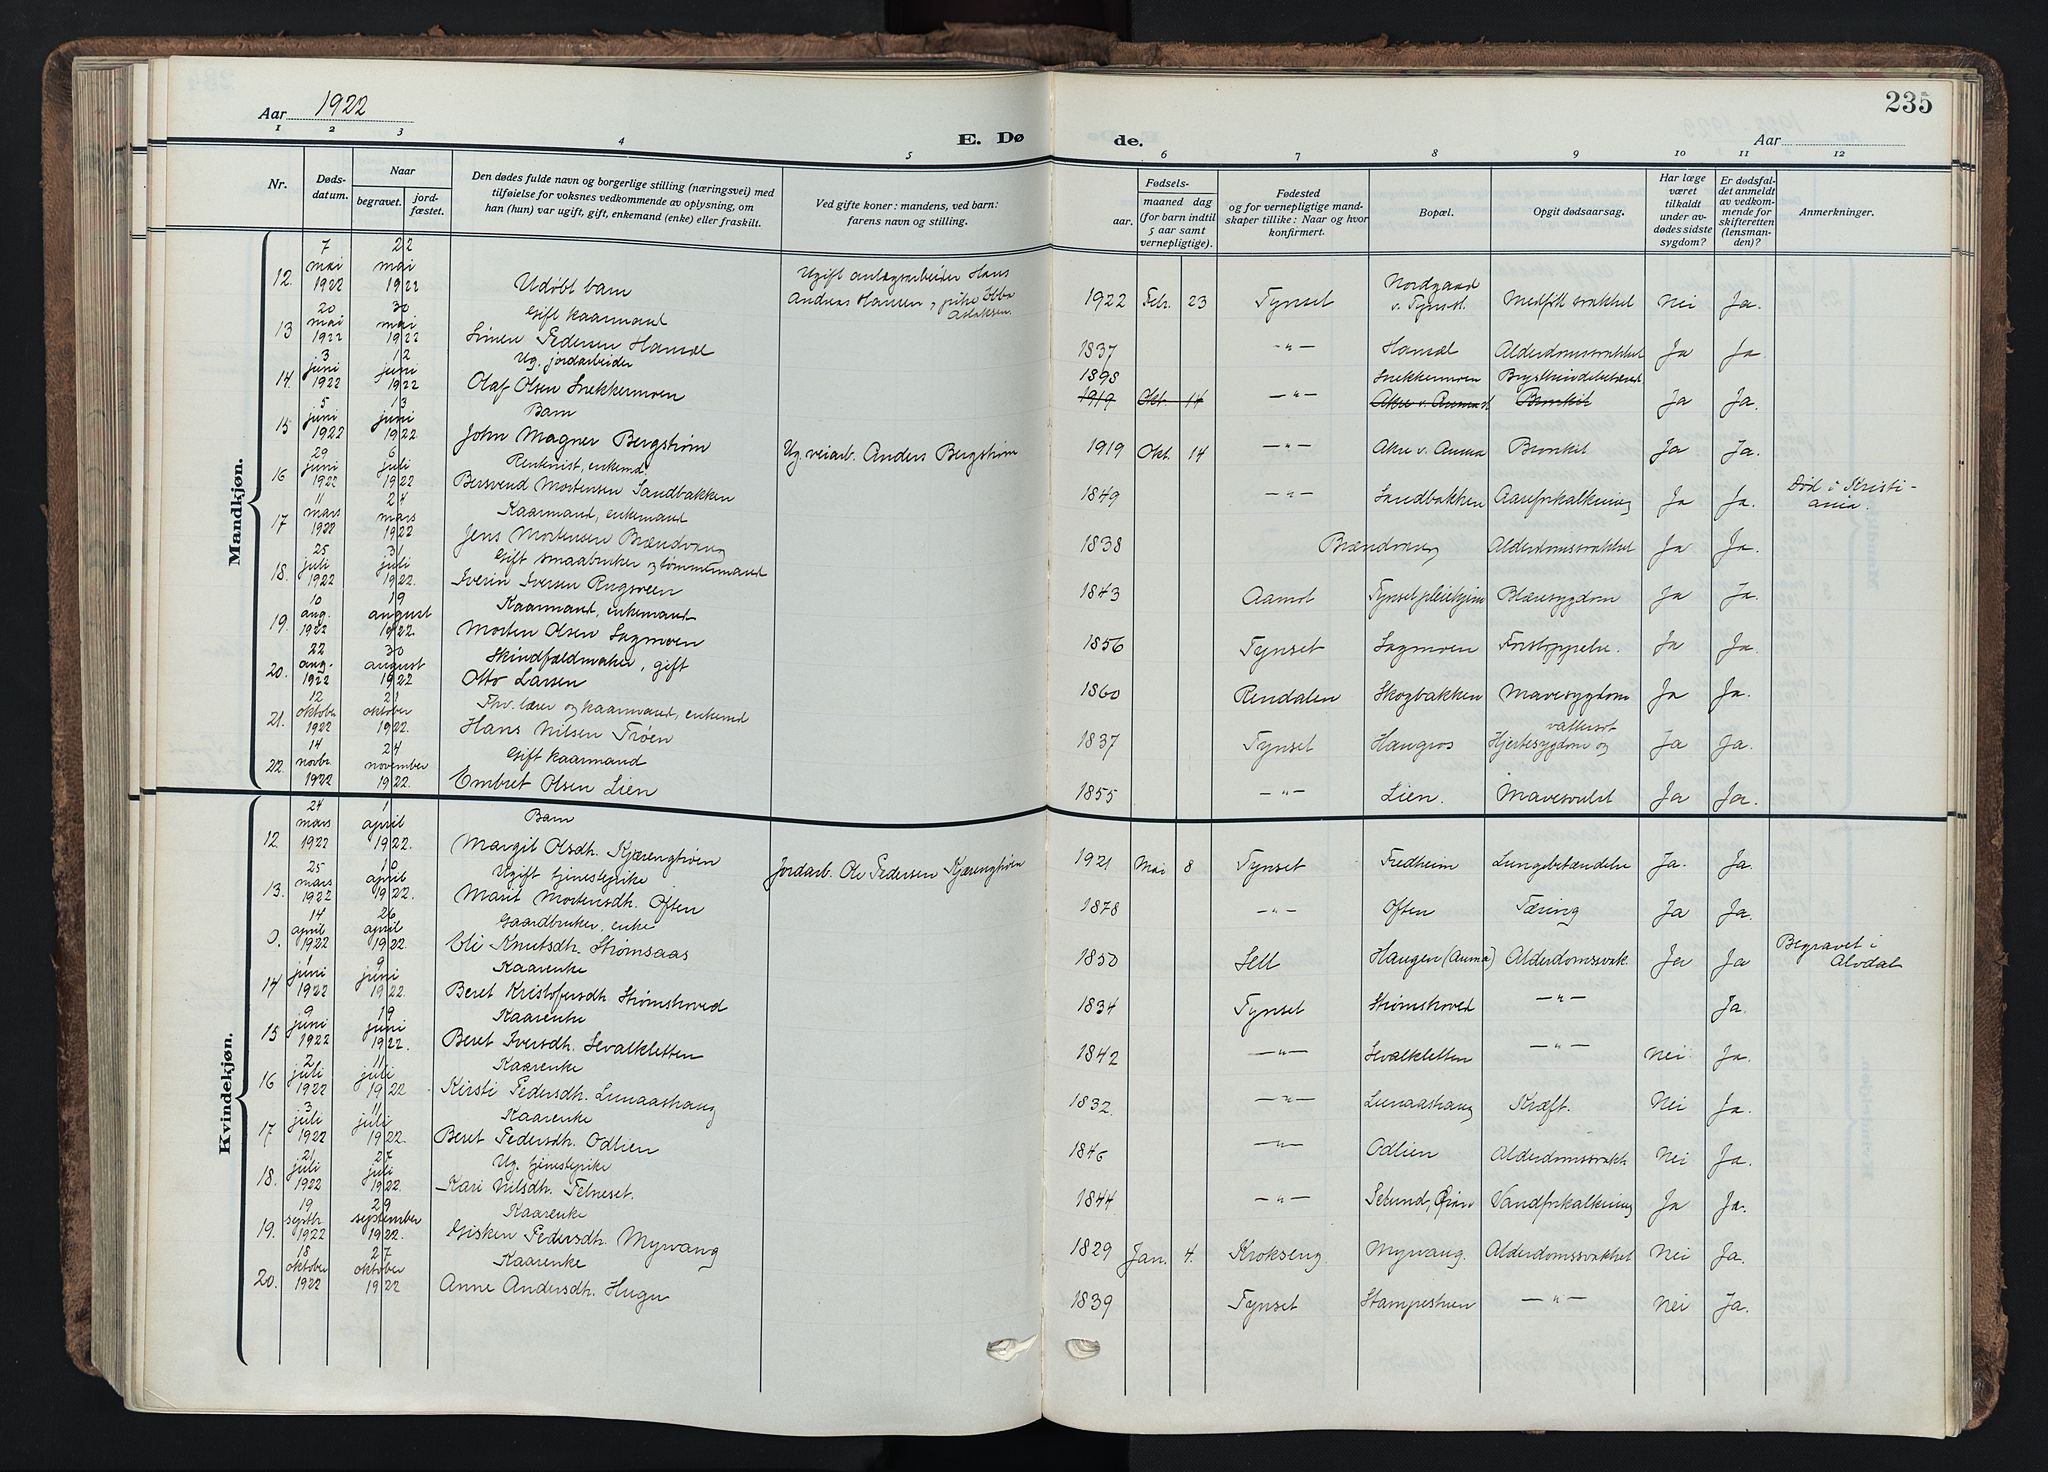 Aar 1922
E. Dø de.
Aar
235
1 2 3 4 5 6 7 8 9 10 11 12
Nr.
Døds-
datum.
Naar
begravet.
jord-
fæstet.
Den dødes fulde navn og borgerlige stilling (næringsvei) med
tilføielse for voksnes vedkommende av oplysning, om
han (hun) var ugift, gift, enkemand (enke) eller fraskilt.
Ved gifte koner: mandens, ved barn:
farens navn og stilling.
Fødsels-
aar. maaned dag
(for barn indtil
5 aar samt
vernepligtige).
Fødested
og for vernepligtige mand-
skaper tillike: Naar og hvor
konfirmert.
Bopæl.
Opgit dødsaarsag.
Har læge
været
tilkaldt
under av-
dødes sidste
sygdom?
Er dødsfal-
det anmeldt
av vedkom-
mende for
skifteretten
(lensman-
den)?
Anmerkninger.
Mandkjøn.
12. 7 mai 1922 22 mai 1922 Udøbt barn Ugift anlægsarbeider Hans
Andreas Hansen, pike Ebba
Aslaksen. 1922 Febr. 23 Tynset Nordgaad
v. Tynset. Medfødt svakhet Nei Ja.
13 20 mai 1922 30 mai 1922 Gift kaarmand
Simen Pedersen Hamæl 1837 —"— Hamæl Alderdomssvakhet Ja Ja.
14. 3 juni 1922 12 juni 1922 Ug. jordarbeider
Olaf Olsen Snekkermoen 1898 Snekkermoen Brysthindebetænd
1919 Okt. 14 —"— Akre v. Auma st Bronkit Ja Ja.
15 5 juni 1922 13 juni 1922 Barn
John Magner Bergstrøm Ug. veiarb. Anders Bergstrøm 1919 Okt. 14 —"— Akre v. Auma Bronkit Ja Ja.
16 29 juni 1922 6 juli 1922 Rentenist, enkemd.
Bersvend Mortensen Sandbakken 1849 —"— Sandbakken Aareforkalkning Ja Ja. Død i Kristi-
ania.
17 11 mars 1922 24 mars 1922 Kaarmand, enkemand
Jens Mortensen Brændvang 1838 Brændvang Alderdomssvakhet Ja Ja.
18. 25 juli 1922 31 juli 1922 Gift smaabruker og tømmermand
Iverin Iversen Rugsveen 1843 Aamot Tynset pleiehjem Blæresygdom Ja Ja.
19. 10 aug. 1922 19 august 1922. Kaarmand, enkemand
Morten Olsen Sagmoen 1856 Tynset Sagmoen Forstoppelse. Ja Ja.
20. 22 aug. 1922 30 august 1922 Skindfældmaker, gift
Otto Larsen 1860 Rendalen Skogbakken Mavesygdom Ja Ja.
21. 12 oktober 1922 21 oktober 1922. Fhv. lærer og kaarmand, enkemd
Hans Nilsen Trøen 1837 Tynset Haugros Hjertesygdom og
vattersot Ja Ja.
22. 14 novbr. 1922 24 november 1922. Gift kaarmand
Embret Olsen Lien 1855 —"— Lien. Mavesvulst Ja Ja.
Kvindekjøn.
12. 24 mars 1922 1 april 1922. Barn
Margit Olsdtr. Kjærengtrøen Jordarb. Ole Pedersen Kjærengtrøen 1921 Mai 8 Tynset Fredheim Lungebetændelse Ja. Ja.
13. 25 mars 1922 10 april 1922. Ugift tjenestepike
Marit Mortensdtr. Often 1878 —"— Often Tæring Ja Ja.
0. 14 april 1922 26 april 1922. Gaardbruker, enke
Eli Knutsdtr. Strømsaas 1850 Sell Haugen (Auma) Alderdomssvak. Ja Ja Begravet i
Alvdal
14 1 juni 1922 9 juni 1922. Kaarenke
Beret Kristofersdtr. Strømshoved 1834 Tynset Strømshoved —"— Ja.
15 9 juni 1922 19 juni 1922. Kaarenke
Beret Iversdtr. Sevalkletten 1842 —"— Sevalkletten —"— Nei Ja.
16 2 juli 1922 11 juli 1922 Kaarenke
Kirsti Pedersdtr. Lunaashaug 1832 —"— Lunaashaug Kræft. Nei Ja.
17 3 juli 1922 11 juli 1922. Kaarenke
Beret Pedersdtr. Odlien 1846 —"— Odlien Alderdomssvakh Nei Ja.
18. 21 juli 1922 27 juli 1922. Ug. tjenestepike
Kari Nilsdtr. Telneset. 1844 —"— Vandforkalkning Ja Ja.
19. 19 septbr. 1922 29 september 1922. Kaarenke
Gisken Pedersdtr. Myrvang 1829 Jan. 4. Krokseng Myrvang. Alderdomssvakhet Nei Ja.
20. 18 oktober 1922 27 oktober 1922 Kaarenke
Anne Andersdtr. Hugu 1839 Tynset Stampestuen —"— Nei Ja.